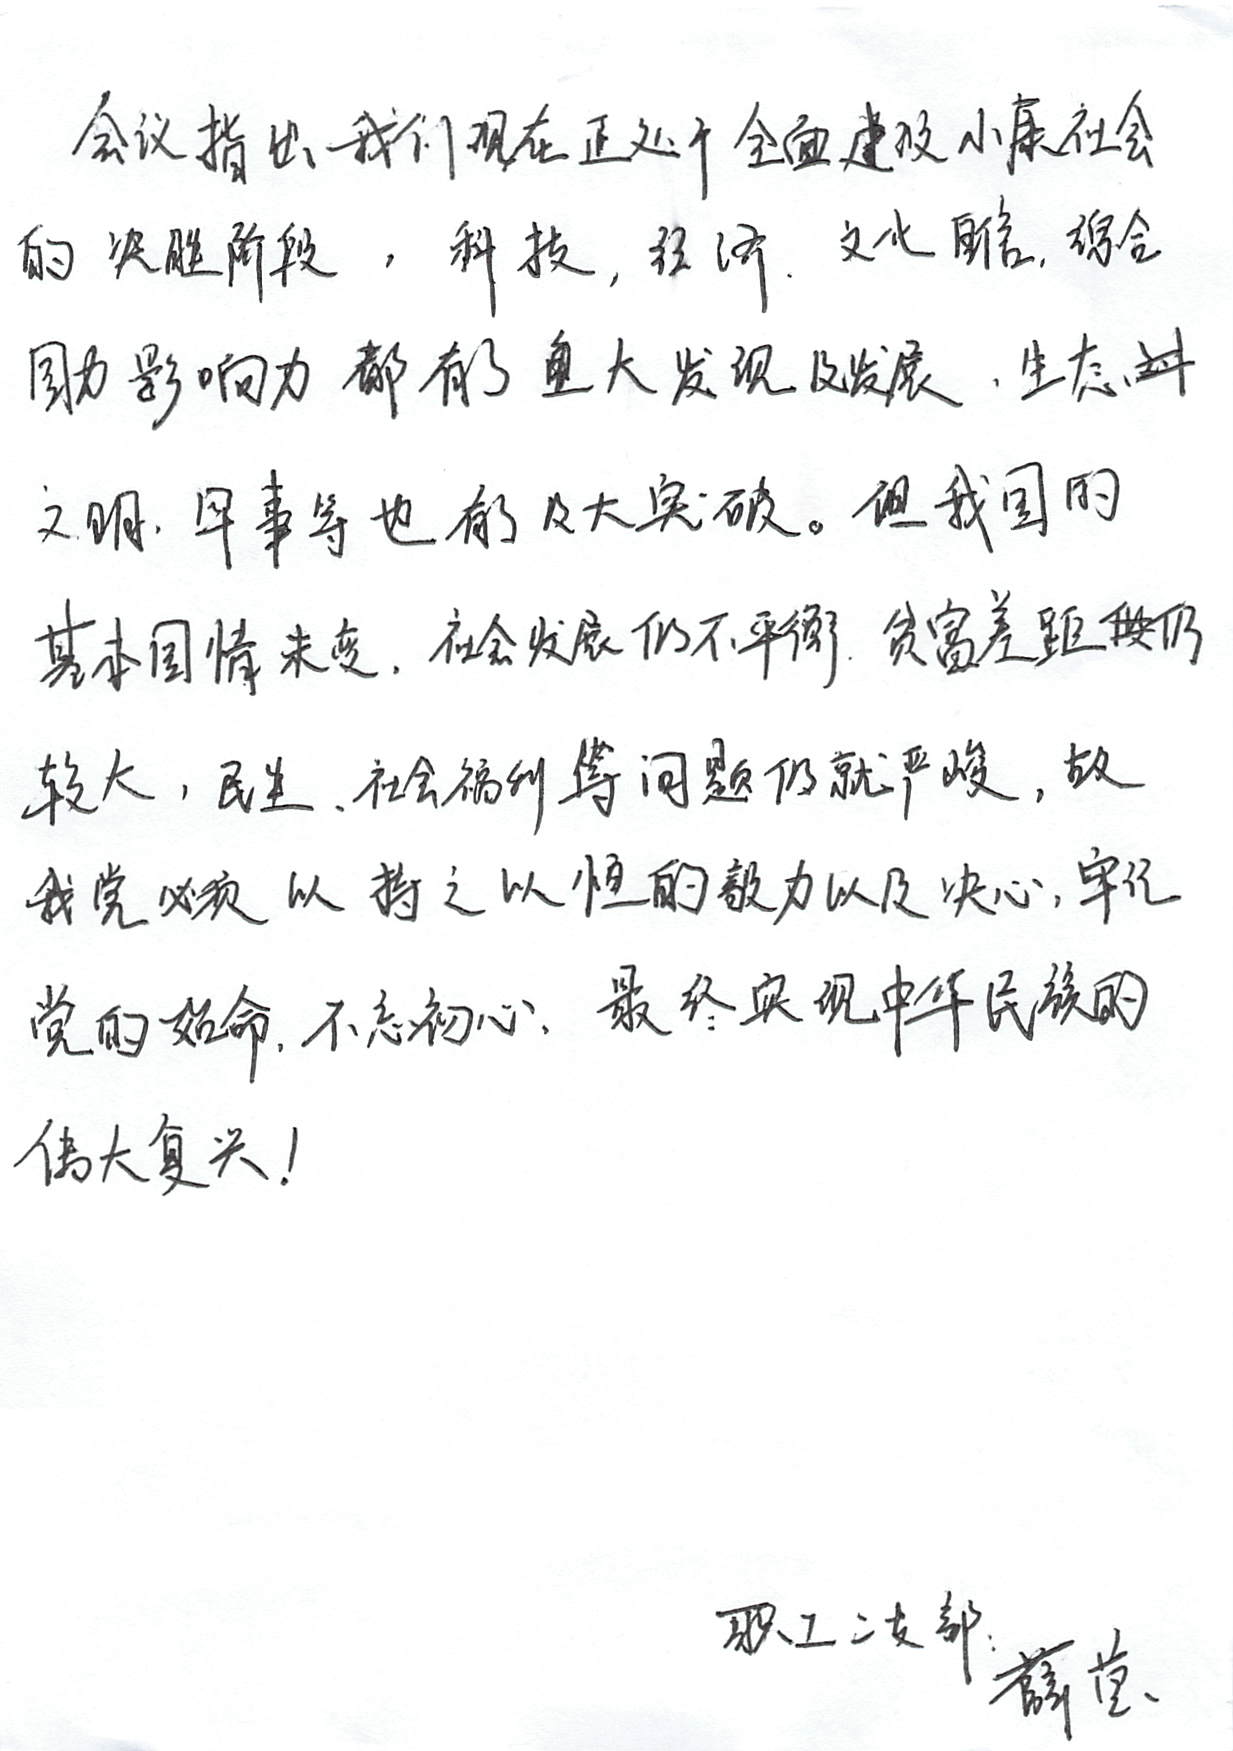 会议指出、我们现在正处于全面建设小康社会
的决胜阶段，科技，经济、文化自信，综合
国力影响力都有了重大发现及发展、生态
文明、军事等也有了及大突破。但我国的
基本国情未变，社会发展仍不平衡、贫富差距仍
较大，民生、社会福利等问题仍就严峻，故
我党必须以持之以恒的毅力以及决心，牢记
党的始命，不忘初心、最终实现中华民族的
伟大复兴！
职工二支部：
薛